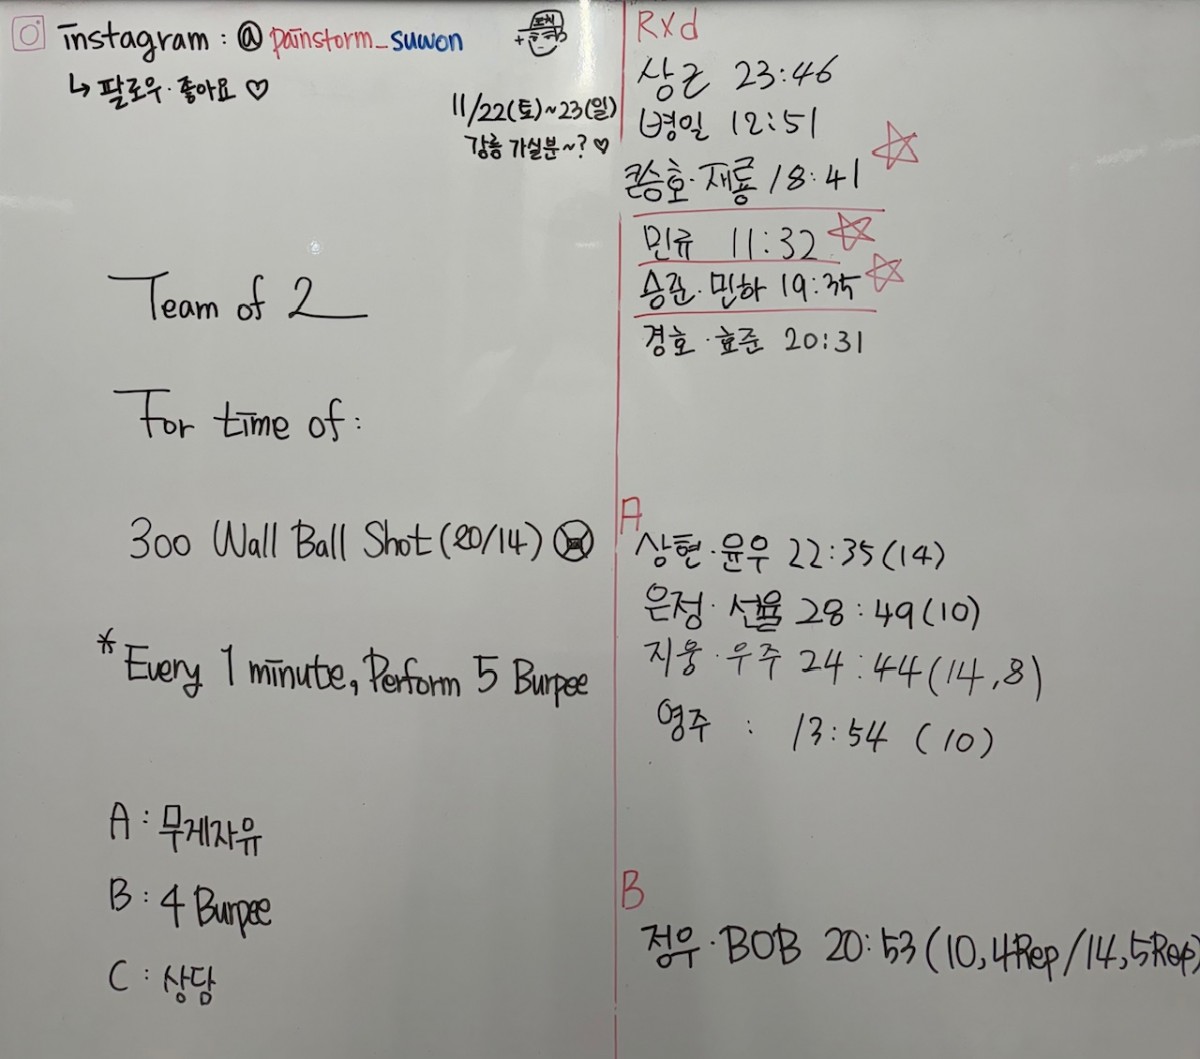 instagram : @ painstorm_suwon
↳ 팔로우·좋아요 ♡
코치
11/22(토)~23(일)
강릉 가실분~? ♡
Team of 2
For time of:
300 Wall Ball Shot (20/14)
* Every 1 minute, Perform 5 Burpee
A : 무게자유
B : 4 Burpee
C : 상담
Rxd
상근 23:46
병일 12:51
큰승호·재룡 18:41
민규 11:32
승준·민하 19:35
경호·효준 20:31
A
상현·윤우 22:35(14)
은정·선율 28:49(10)
지웅·우주 24:44(14,8)
영주 : 13:54 (10)
B
정우·BOB 20:53(10,4Rep/14,5Rep)